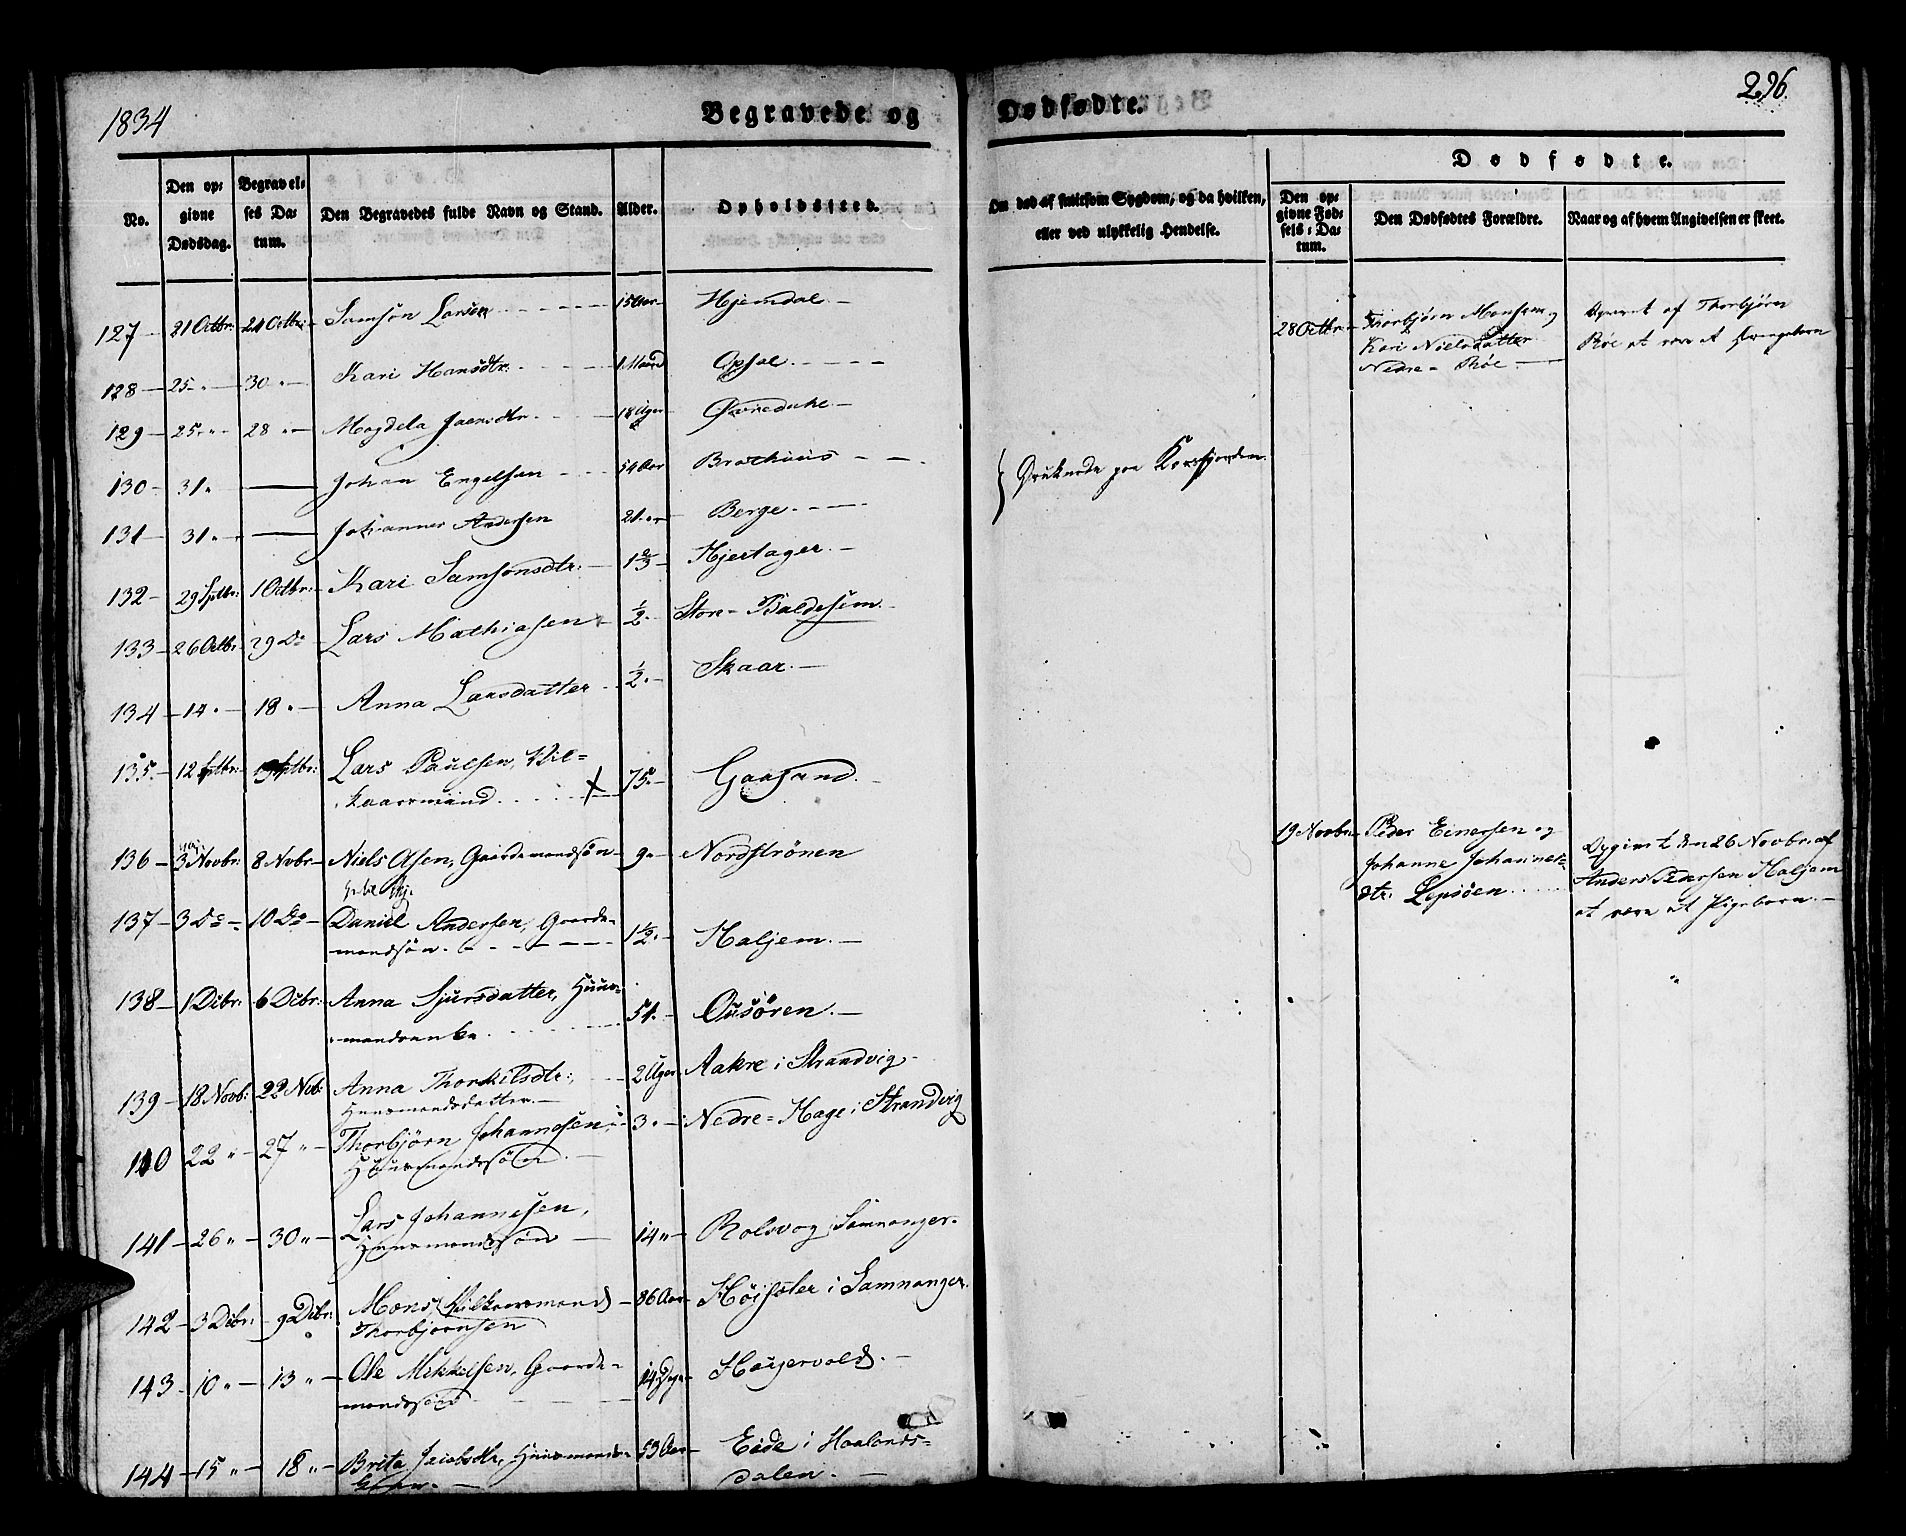 1834
Begravede og
Dødfødte.
296.
No.
Den op-
givne
Dødsdag.
Begravel-
ses Da-
tum.
Den Begravedes fulde Navn og Stand.
Alder.
Opholdssted.
Om død af smitsom Sygdom, og da hvilken,
eller ved ulykkelig Hendelse.
Dødfødte.
Den op-
givne Fød-
sels-Da-
tum.
Den Dødfødtes Forældre.
Naar og af hvem Angivelsen er skeet.
127 21 Octbr: 24 Octbr: Samson Larsen 15 Aar Hjemdal
28 Octbr: Thorbjörn Monsen og
Kari Nielsdatter
Nedre-Röe
af Thorbjörn
Röe at være et Drengebarn
128 25 " 30 " Kari Hansdtr. 1 Maand Opsal
129 25 " 28 " Magdela 18 Uger Øvredahl
130 31 " Johan Engelsen 54 Aar Brathuus
Druknede paa Korsfjorden.
131 31 " Johannes Andersen 21 " Berge
132 29 Sptbr: 1 Octbr: Kari Samsonsdtr: 1 2/3 Hjertager
133 26 Octbr: 29 Do Lars Mathiasen 1/2 Store-Baldesem
134 14 " 18 " Anna Larsdatter 1/2 Skaar
135 12 Sptbr: Sptbr: Lars Paulsen, Vil=
kaarsmand 75 Gaasand
136 3 Novbr: 8 Novbr Niels Olsen, Gaardemandsøn 9 Nordströnen
19 Novbr: Peder Einersen og
Johanne Johannes=
dtr: Lepsöen
Angivet den 26 Novbr: af
Anders Pedersen Haljem
at være et Pigebarn.
137 3 Do 10 Do Daniel Andersen, Gaarde=
mandsøn 1 1/2 Haljem
138 1 Debr: 6 Debr: Anna Sjursdatter, Huus=
mandsenke 51 Ousören
139 18 Novb: 22 Nvb: Anna Thorkilsdtr:,
Huusmandsdatter 2 Uger Aakre i Strandvig
140 22 " 27 " Thorbjörn Johannesen,
Huusmandssön 3 " Nedre-Hage i Strandvig
141 26 " 30 " Lars Johannesen,
Huusmandssön 14 " Rolsvog i Samnanger
142 3 Debr: 9 Debr: Mons (Vilkaarsmand)
Thorbjörnsen 86 Aar Höisæter i Samnanger
143 10 " 13 " Ole Mikkelsen, Gaarde=
mandssön 14 Dage Haugervold
144 15 " 18 " Brita Jacobsdtr, Huusmands=
53 Aar Eide i Haalands=
dalen.